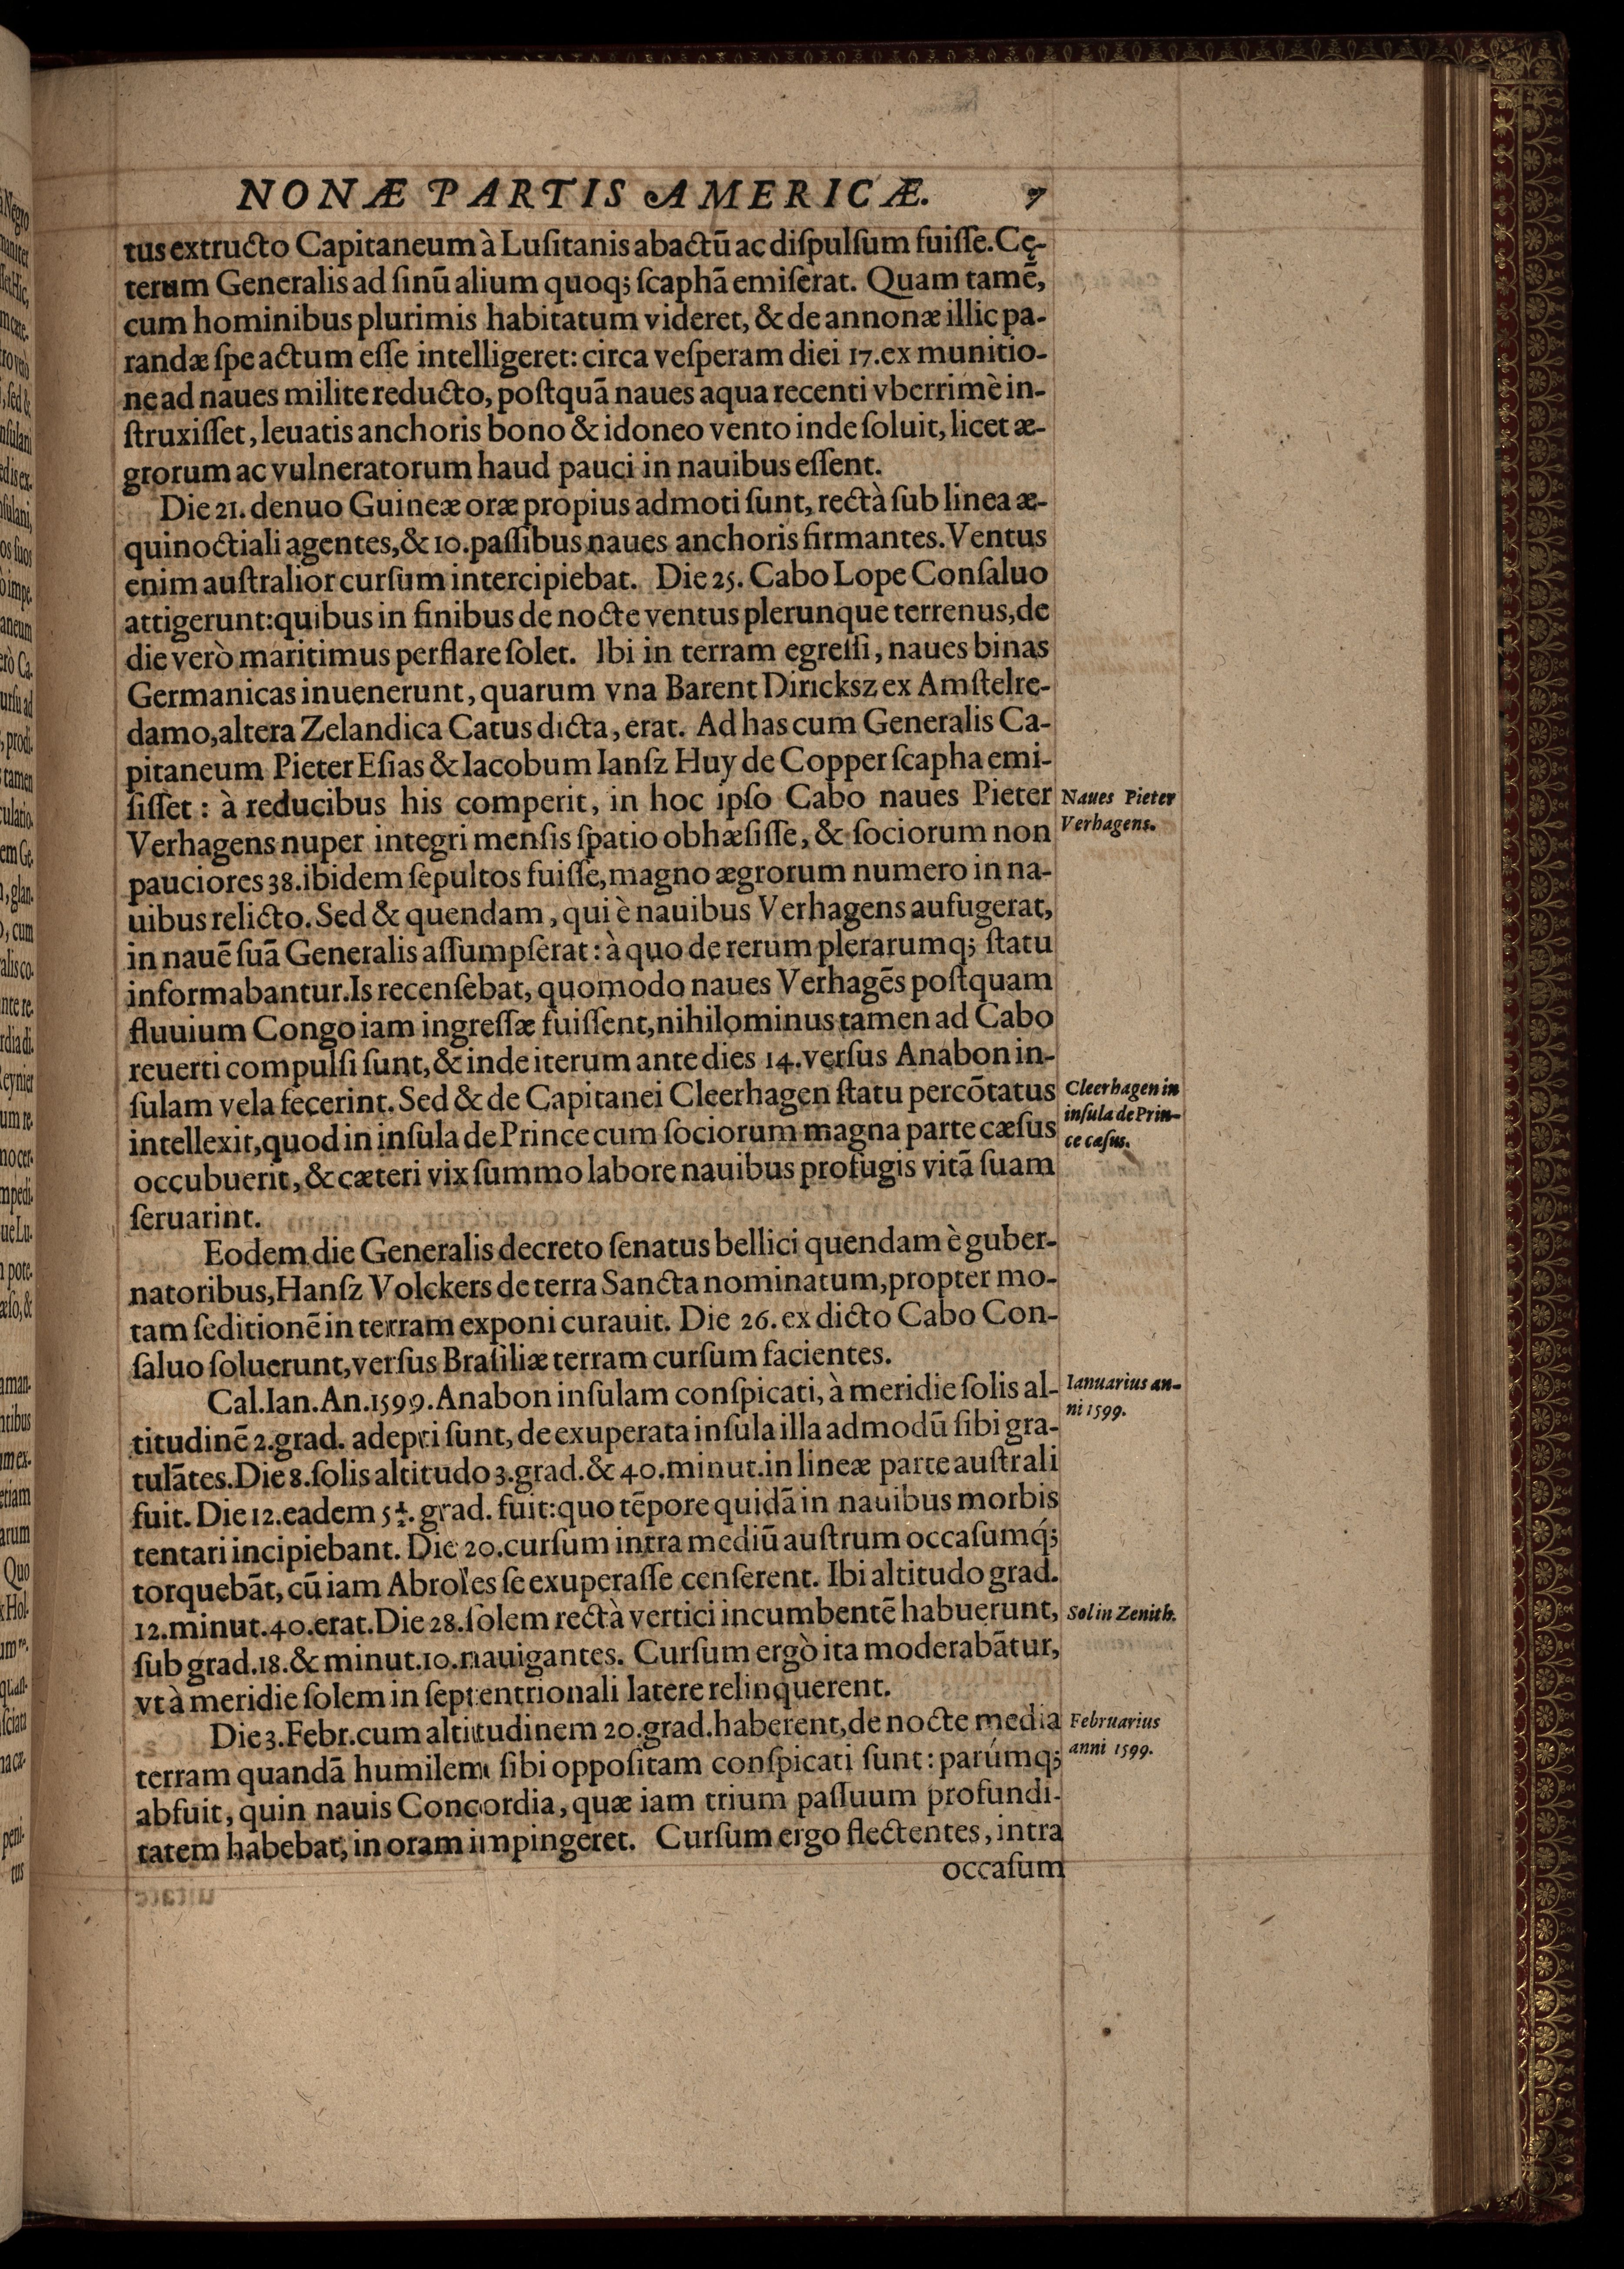 NONÆ PARTIS AMERICÆ. 7
tus extructo Capitaneum à Luſitanis abactū ac diſpulſum fuiſſe. Cę-
terum Generalis ad ſinū alium quoq; ſcaphā emiſerat. Quam tamē,
cum hominibus plurimis habitatum videret, & de annonæ illic pa-
randæ ſpe actum eſſe intelligeret: circa veſperam diei 17. ex munitio-
ne ad naues milite reducto, poſtquā naues aqua recenti vberrimè in-
ſtruxiſſet, leuatis anchoris bono & idoneo vento inde ſoluit, licet æ-
grorum ac vulneratorum haud pauci in nauibus eſſent.
Die 21. denuo Guineæ oræ propius admoti ſunt, rectà ſub linea æ-
quinoctiali agentes, & 10. paſſibus naues anchoris firmantes. Ventus
enim auſtralior curſum intercipiebat. Die 25. Cabo Lope Conſaluo
attigerunt: quibus in finibus de nocte ventus plerunque terrenus, de
die verò maritimus perflare ſolet. Ibi in terram egreſſi, naues binas
Germanicas inuenerunt, quarum vna Barent Diricksz ex Amſtelre-
damo, altera Zelandica Catus dicta, erat. Ad has cum Generalis Ca-
pitaneum Pieter Eſias & Iacobum Ianſz Huy de Copper ſcapha emi-
ſiſſet: à reducibus his comperit, in hoc ipſo Cabo naues Pieter
Naues Pieter
Verhagens.
Verhagens nuper integri menſis ſpatio obhæſiſſe, & ſociorum non
pauciores 38. ibidem ſepultos fuiſſe, magno ægrorum numero in na-
uibus relicto. Sed & quendam, qui è nauibus Verhagens aufugerat,
in nauē ſuā Generalis aſſumpſerat: à quo de rerum plerarumq; ſtatu
informabantur. Is recenſebat, quomodo naues Verhagēs poſtquam
fluuium Congo iam ingreſſæ fuiſſent, nihilominus tamen ad Cabo
reuerti compulſi ſunt, & inde iterum ante dies 14. verſus Anabon in-
ſulam vela fecerint. Sed & de Capitanei Cleerhagen ſtatu percōtatus
Cleerhagen in
inſula de Prin-
ce cæſus.
intellexit, quod in inſula de Prince cum ſociorum magna parte cæſus
occubuerit, & cæteri vix ſummo labore nauibus profugis vitā ſuam
ſeruarint.
Eodem die Generalis decreto ſenatus bellici quendam è guber-
natoribus, Hanſz Volckers de terra Sancta nominatum, propter mo-
tam ſeditionē in terram exponi curauit. Die 26. ex dicto Cabo Con-
ſaluo ſoluerunt, verſus Braſiliæ terram curſum facientes.
Cal. Ian. An. 1599. Anabon inſulam conſpicati, à meridie ſolis al-
Ianuarius an-
ni 1599.
titudinē 2. grad. adepti ſunt, de exuperata inſula illa admodū ſibi gra-
tulātes. Die 8. ſolis altitudo 3. grad. & 40. minut. in lineæ parte auſtrali
fuit. Die 12. eadem 5½. grad. fuit: quo tēpore quidā in nauibus morbis
tentari incipiebant. Die 20. curſum intra mediū auſtrum occaſumq́;
torquebāt, cū iam Abroles ſe exuperaſſe cenſerent. Ibi altitudo grad.
12. minut. 40. erat. Die 28. ſolem rectà vertici incumbentē habuerunt,
Sol in Zenith.
ſub grad. 18. & minut. 10. nauigantes. Curſum ergò ita moderabātur,
vt à meridie ſolem in ſeptentrionali latere relinquerent.
Die 3. Febr. cum altitudinem 20. grad. haberent, de nocte media
Februarius
anni 1599.
terram quandā humilem ſibi oppoſitam conſpicati ſunt: parúmq;
abfuit, quin nauis Concordia, quæ iam trium paſſuum profundi-
tatem habebat, in oram impingeret. Curſum ergo flectentes, intra
occaſum